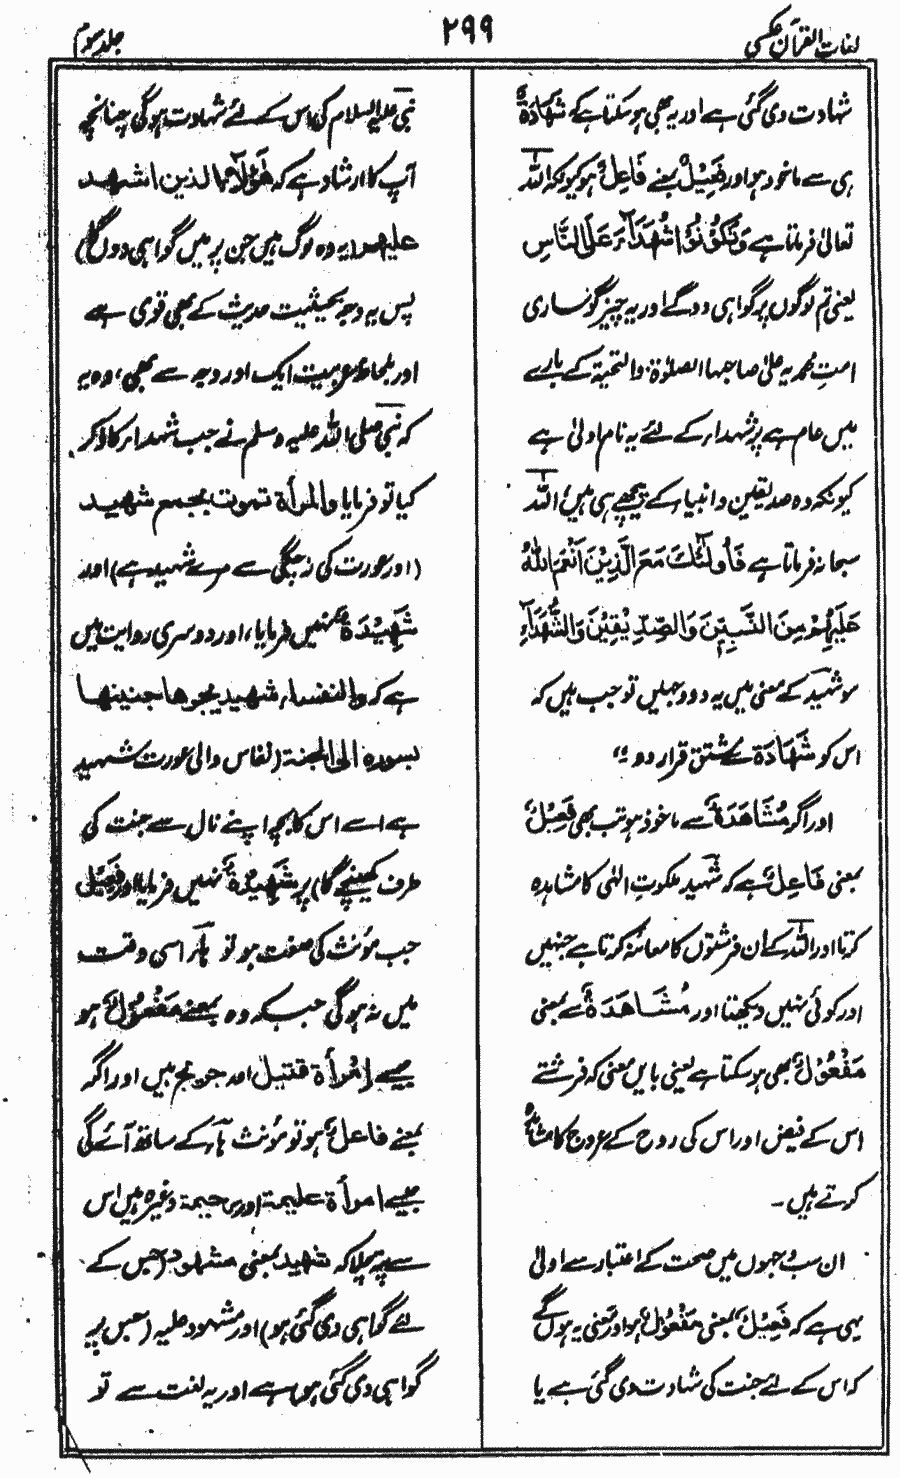 لغات القرآن عکسی
۲۹۹
جلد سوم
شہادت دی گئی ہے اور یہ بھی ہو سکتا ہے کہ شَہَادَۃٌ
ہی سے ماخوذ ہو اور فَعِیْلٌ بمعنے فَاعِلٌ ہو کیونکہ اللہ
تعالیٰ فرماتا ہے وَتَکُوْنُوْا شُہَدَآءَ عَلَی النَّاسِ
یعنی تم لوگوں پر گواہی دو گے اور یہ چیز گو ساری
امتِ محمدیہ علیٰ صاحبہا الصلوٰۃ والتحیۃ کے بارے
میں عام ہے پر شہداء کے لئے یہ نام اولیٰ ہے
کیونکہ وہ صدیقین و انبیاء کے پیچھے ہی ہیں، اللہ
سبحانہ فرماتا ہے فَاُولٰٓئِکَ مَعَ الَّذِیْنَ اَنْعَمَ اللّٰہُ
عَلَیْہِمْ مِنَ النَّبِیّٖنَ وَالصِّدِّیْقِیْنَ وَالشُّہَدَآءِ
سو شہید کے معنی میں یہ دو وجہیں تو جب ہیں کہ
اس کو شَہَادَۃ سے مشتق قرار دو ۔،،
اور اگر مُشَاہَدَۃٌ سے ماخوذ ہو تب بھی فَعِیْلٌ
بمعنی فَاعِلٌ ہے کہ شہید ملکوتِ الٰہی کا مشاہدہ
کرتا اور اللہ کے ان فرشتوں کا معائنہ کرتا ہے جنہیں
اور کوئی نہیں دیکھتا اور مُشَاہَدَۃٌ سے بمعنی
مَفْعُوْلٌ بھی ہو سکتا ہے یعنی بایں معنی کہ فرشتے
اس کے فیض اور اس کی روح کے عروج کا مشاہدہ
کرتے ہیں ۔
ان سب وجہوں میں صحت کے اعتبار سے اولیٰ
یہی ہے کہ فَعِیْلٌ بمعنی مَفْعُوْلٌ ہو اور معنی یہ ہوں گے
کہ اس کے لئے جنت کی شہادت دی گئی ہے یا
نبی علیہ السلام کی اس کے لئے شہادت ہو گی چنانچہ
آپ کا ارشاد ہے کہ ھٰؤلآء الذین اشھد
علیھم (یہ وہ لوگ ہیں جن پر میں گواہی دوں گا)
پس یہ وجہ بحیثیت حدیث کے بھی قوی ہے
اور بلحاظ عربیت ایک اور وجہ سے بھی، وہ یہ
کہ نبی صلی اللہ علیہ وسلم نے جب شہداء کا ذکر
کیا تو فرمایا والمرأۃ تموت بجمع شھید
(اور عورت کی زچگی سے مرے شہید ہے) اور
شَہِیْدَۃٌ نہیں فرمایا، اور دوسری روایت میں
ہے کہ والنفساء شھید یجرھا جنینھا
بسررہ الی الجنۃ (نفاس والی عورت شہید
ہے اسے اس کا بچہ اپنے نال سے جنت کی
طرف کھینچے گا) پر شَہِیْدَۃٌ نہیں فرمایا اور فَعِیْلٌ
جب مؤنث کی صفت ہو تو ہاء اسی وقت
میں نہ ہو گی جب کہ وہ بمعنے مَفْعُوْلٌ ہو
جیسے اِمْرأۃ قتیل اور جریح میں اور اگر
بمعنے فاعلٌ ہو تو مؤنث ہاء کے ساتھ آئے گی
جیسے امرأۃ علیمۃ اور رحیمۃ وغیرہ میں اس
سے پتہ چلا کہ شہید بمعنی مشہود (جس کے
لئے گواہی دی گئی ہو) اور مشہود علیہ (جس پر
گواہی دی گئی ہو) ہے اور یہ لغت سے تو